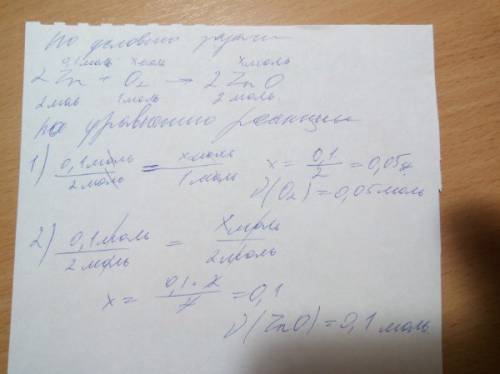 По условию задачи
0,1 моль x моль x моль
2Zn + O₂ → 2ZnO
2 моль 1 моль 2 моль
По уравнению реакции
1) 0,1 моль / 2 моль = x моль / 1 моль x = 0,1 / 2 = 0,05
ν(O₂) = 0,05 моль
2) 0,1 моль / 2 моль = x моль / 2 моль
x = 0,1 · 2 / 2 = 0,1
ν(ZnO) = 0,1 моль